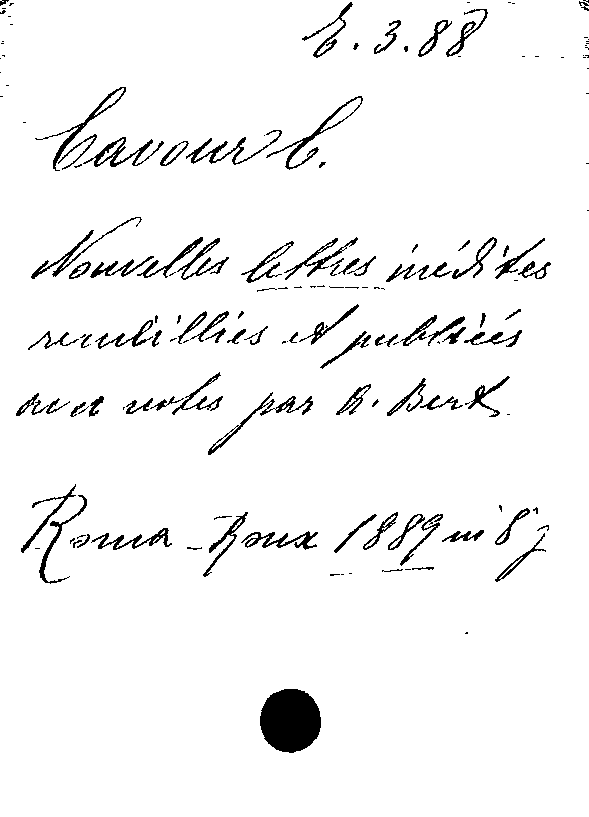 E. 3. 88
Cavour C.
Nouvelles lettres inédites
recueillies et publiées
avec notes par A. Bert
Roma - Roux 1889 in 8°